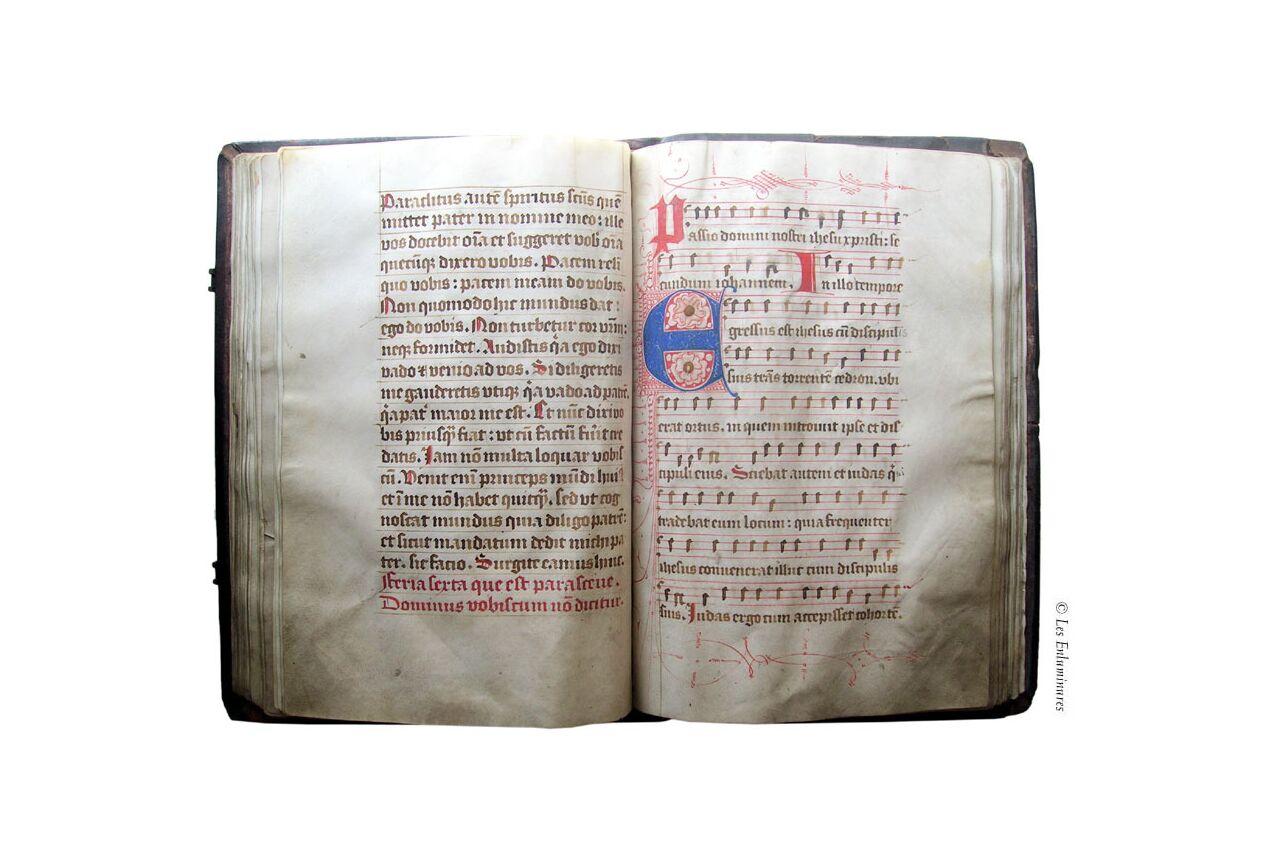 Paraclitus autē spiritus scūs quē
mittet pater in nomine meo: ille
vos docebit oīa et suggeret vob oīa
quecūqꝫ dixero vobis. Pacem reli
quo vobis: pacem meam do vobis.
Non quomodo hic mundus dat:
ego do vobis. Non turbetur cor vrm:
neqꝫ formidet. Audistis qa ego dixi
vado & venio ad vos. Si diligeretis
me gauderetis vtiqꝫ qa vado ad patrē
qa pat maior me est. Et nūc dixi vo
bis priusqꝫ fiat: vt cū factū fuīt cre
datis. Iam nō multa loquar vobis
cū. Venit enī princeps mūdi huiꝰ
et ī me nō habet quicqꝫ. sed vt cog
noscat mundus quia diligo patrē:
et sicut mandatum dedit michi pa
ter. sic facio. Surgite eamus hinc.
feria sexta que est parasceue.
Dominus vobiscum nō dicitur.
Passio domini nostri ihesu xpristi: se
cundum iohannem. In illo tempore
Egressus est ihesus cū discipulis
suis trās torrentē cedron. vbi
erat ortus. in quem introiuit ipse et dis
cipuli eius. Sciebat autem et iudas q
tradebat eum locum: quia frequenter
ihesus conuenerat illuc cum discipulis
suis. Iudas ergo cum accepisset cohortē.
© Les Enluminures